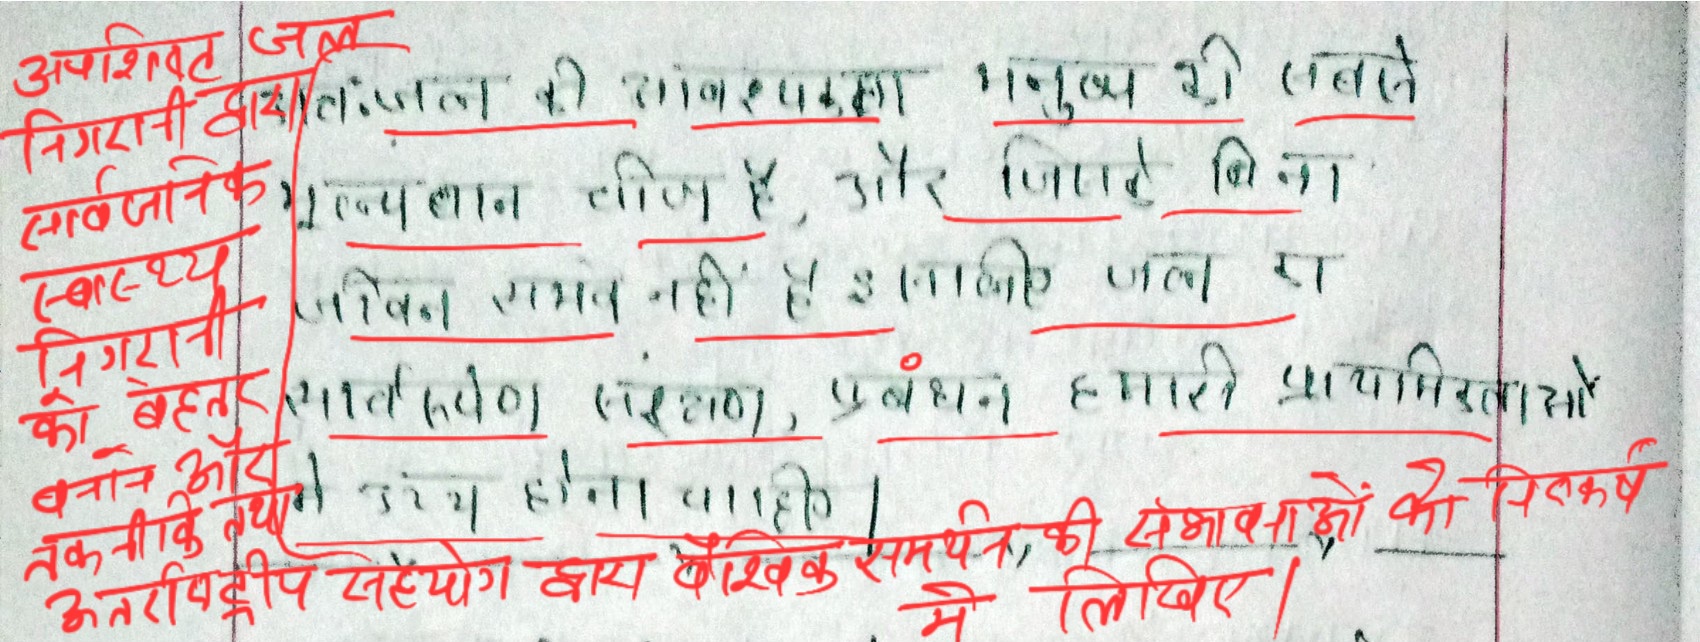 अपशिष्ट जल
निगरानी द्वारा
सार्वजनिक
स्वास्थ्य
निगरानी
को बेहतर
बनाने और
तकनीकि तथा
अंतर्राष्ट्रीय सहयोग द्वारा वैश्विक समर्थन, की संभावनाओं को निष्कर्ष
में लिखिए।
अतः जल की आवश्यकता मनुष्य की सबसे
मूल्यवान चीज है, और जिसके बिना
जीवन संभव नहीं है इसलिए जल का
संरक्षण, प्रबंधन हमारी प्राथमिकताओं
में उच्च होना चाहिए।